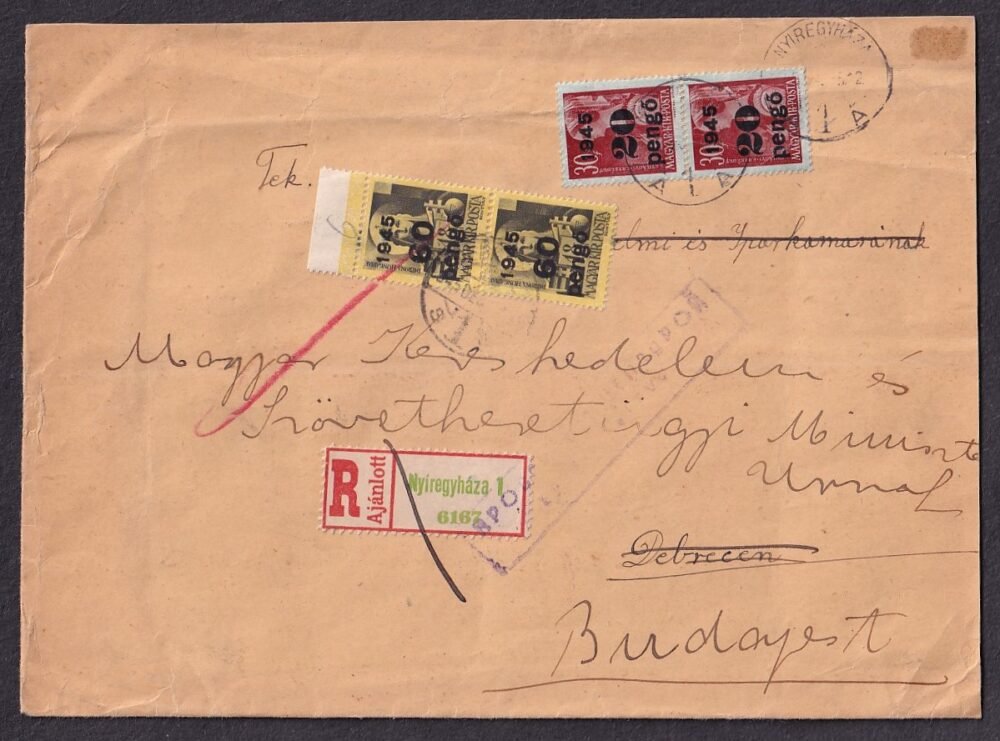 NYIREGYHÁZA
1
A
30
1945
20
pengő
MAGYAR KIR. POSTA
30
1945
20
pengő
MAGYAR KIR. POSTA
A
A
Tek.
1945
60
pengő
18
MAGYAR KIR. POSTA
1945
60
pengő
18
MAGYAR KIR. POSTA
elmi és Iparkamarának
Magyar Kereshedelem és
Szövethezetiügyi Miniszte
Urnak
R
Ajánlott
Nyiregyháza 1
6167
Debrecen
Budapest